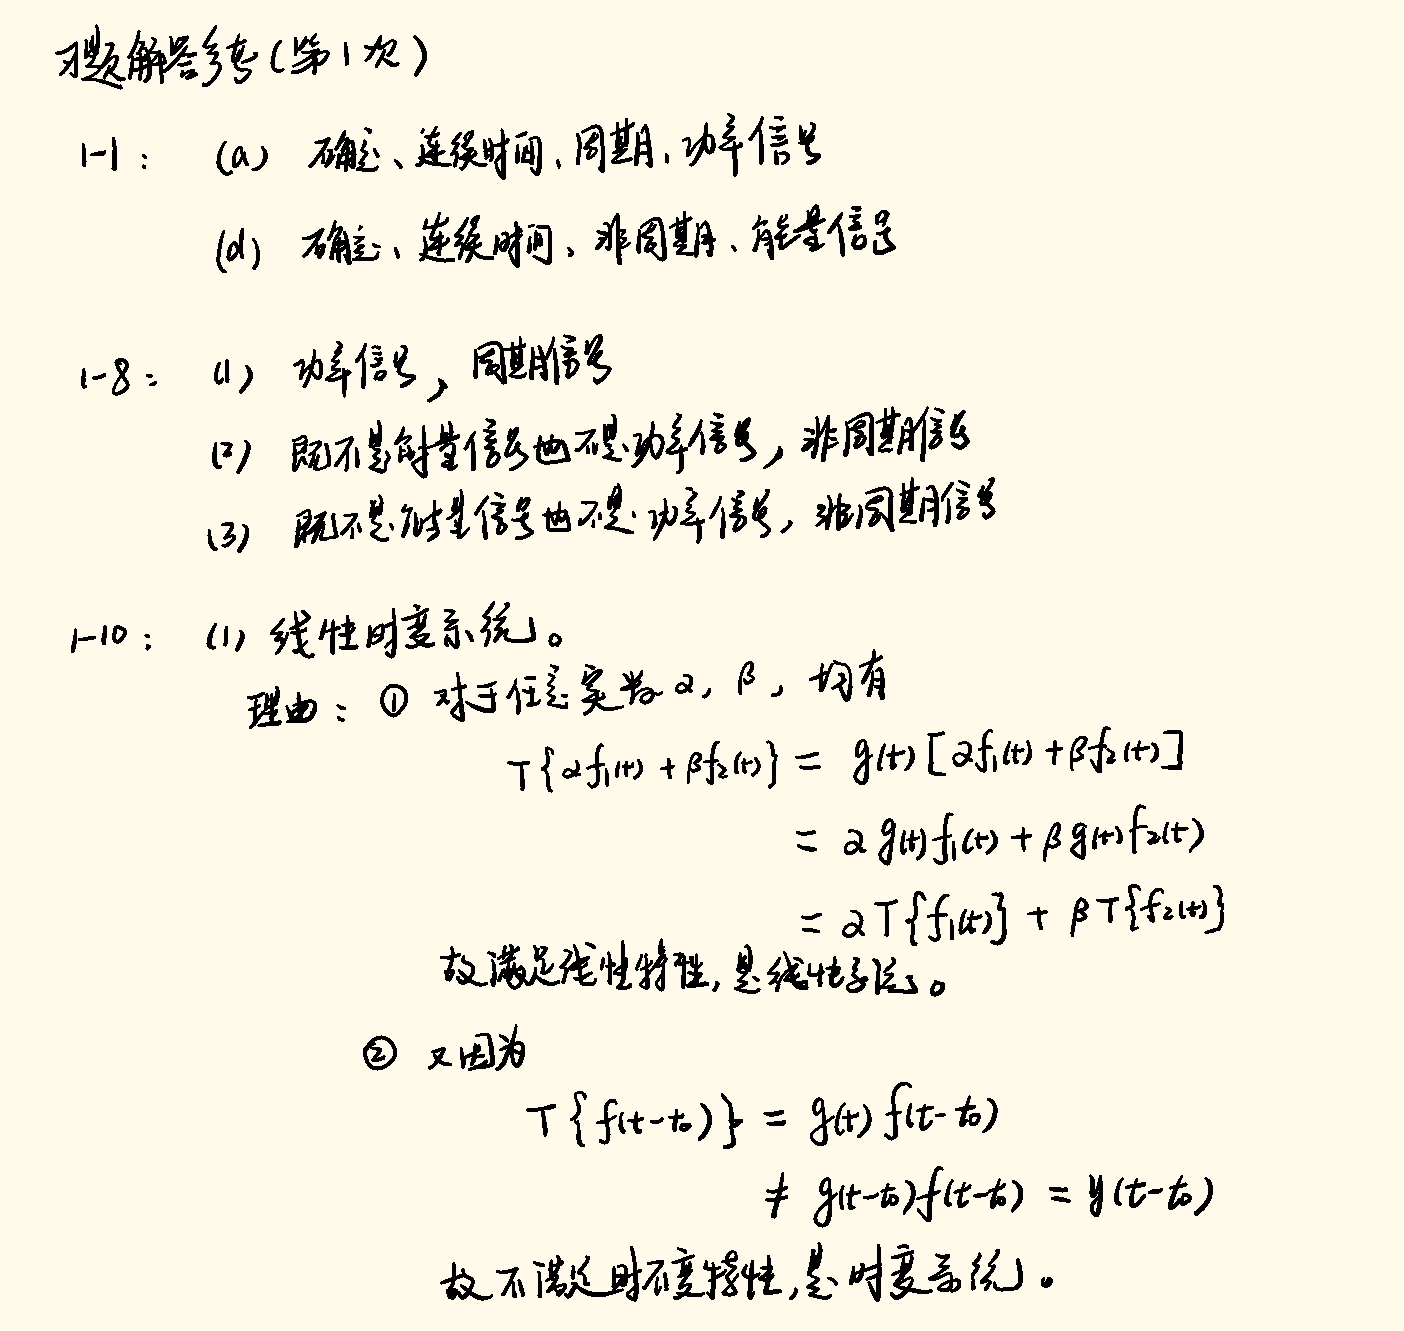 习题解答参考(第1次)
1-1: (a) 确定、连续时间、周期、功率信号
(d) 确定、连续时间、非周期、能量信号
1-8: (1) 功率信号, 周期信号
(2) 既不是能量信号也不是功率信号, 非周期信号
(3) 既不是能量信号也不是功率信号, 非周期信号
1-10: (1) 线性时变系统。
理由: ① 对于任意实数 α, β, 均有
T{αf₁(t) + βf₂(t)} = g(t)[αf₁(t) + βf₂(t)]
= αg(t)f₁(t) + βg(t)f₂(t)
= αT{f₁(t)} + βT{f₂(t)}
故满足线性特性, 是线性系统。
② 又因为
T{f(t-t₀)} = g(t)f(t-t₀)
≠ g(t-t₀)f(t-t₀) = y(t-t₀)
故不满足时不变特性, 是时变系统。